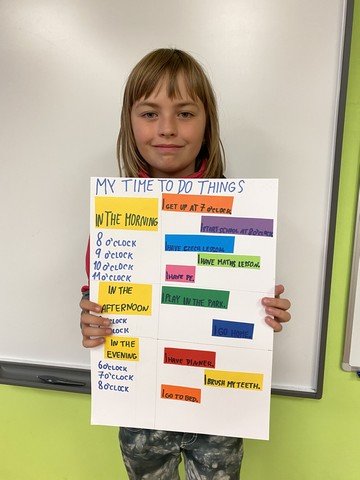 MY TIME TO DO THINGS
IN THE MORNING
I GET UP AT 7 O'CLOCK.
I START SCHOOL AT 8 O'CLOCK.
8 O'CLOCK
9 O'CLOCK
10 O'CLOCK
11 O'CLOCK
I HAVE CZECH LESSON.
I HAVE MATHS LESSON.
I HAVE PE.
IN THE
AFTERNOON
I PLAY IN THE PARK.
CLOCK
CLOCK
I GO HOME.
IN THE
EVENING
6 O'CLOCK
7 O'CLOCK
8 O'CLOCK
I HAVE DINNER.
I BRUSH MY TEETH.
I GO TO BED.